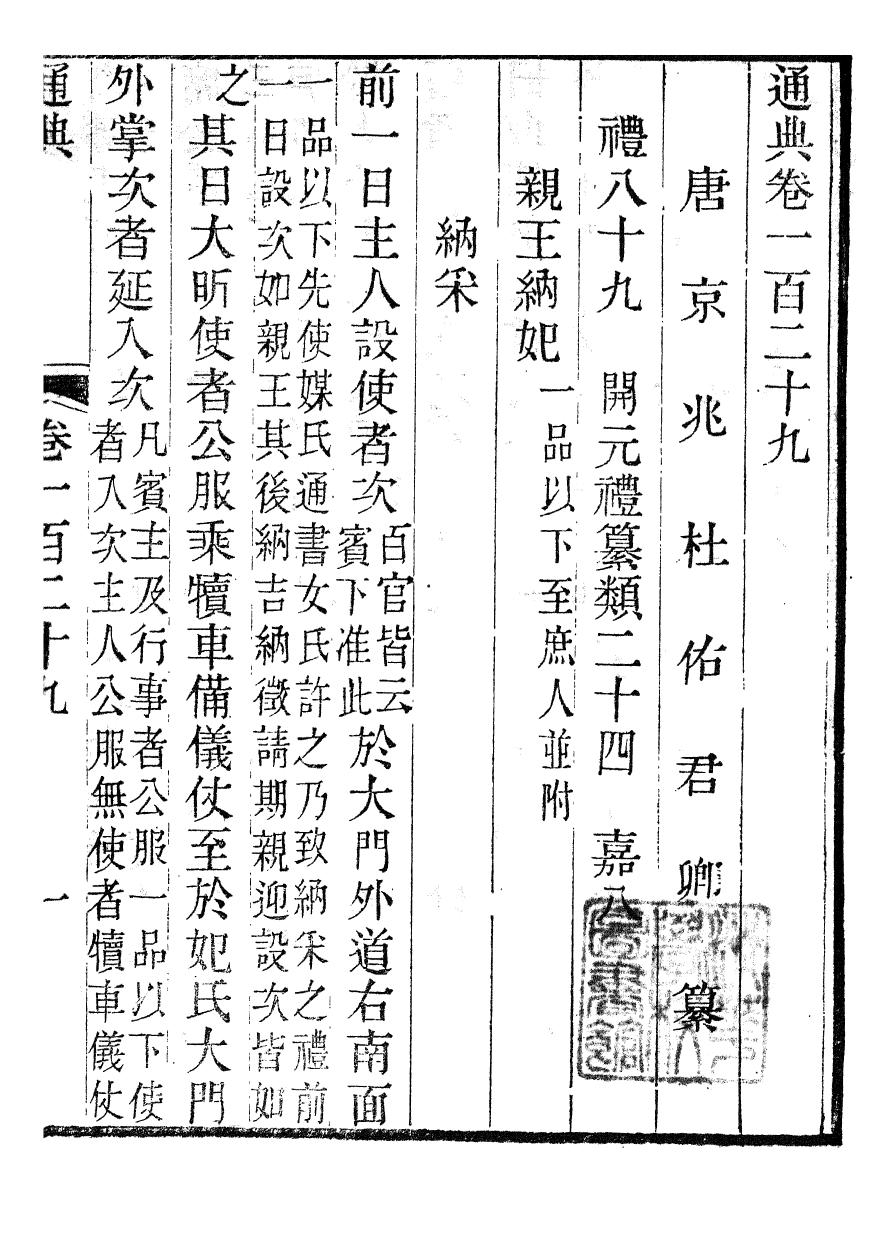 通典卷一百二十九
唐京兆杜佑君卿纂
禮八十九　開元禮纂類二十四　嘉八
親王納妃一品以下至庶人並附
納采
前一日主人設使者次百官皆云
賓下准此於大門外道右南面
一品以下先使媒氏通書女氏許之乃致納采之禮前
一日設次如親王其後納吉納徵請期親迎設次皆如
之其日大昕使者公服乘犢車備儀仗至於妃氏大門
外掌次者延入次凡賓主及行事者公服一品以下使
者入次主人公服無使者犢車儀仗
通典
卷一百二十九
一